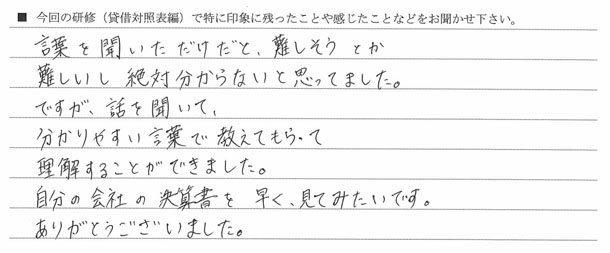 ■ 今回の研修（貸借対照表編）で特に印象に残ったことや感じたことなどをお聞かせ下さい。
言葉を聞いただけだと、難しそうとか
難しいし絶対分からないと思ってました。
ですが、話を聞いて、
分かりやすい言葉で教えてもらって
理解することができました。
自分の会社の決算書を早く、見てみたいです。
ありがとうございました。